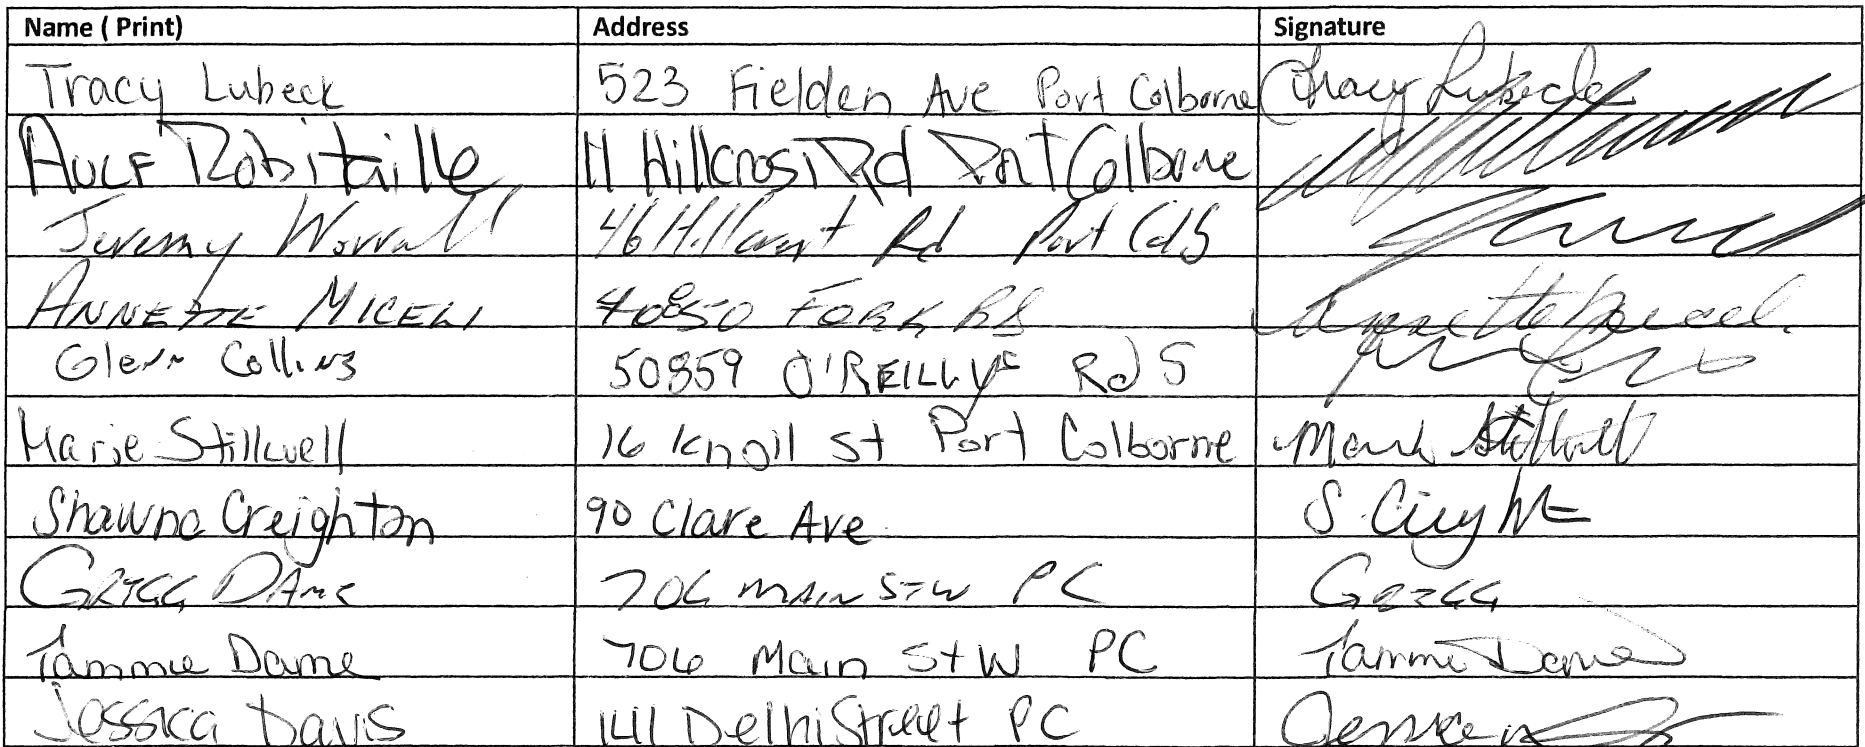 Name ( Print) Address Signature
Tracy Lubeck 523 Fielden Ave Port Colborne Tracy Lubeck
Robitaille 11 Rd Port Colborne
Jeremy Worrall 46 Hillcrest Rd Port Colb
ANNETTE MICELI 40850 FORK RD Annette Miceli
Glenn Collins 50859 O'REILLY'S Rd S
Marie Stillwell 16 Knoll St Port Colborne Marie Stillwell
Shawna Creighton 90 Clare Ave S. Creighton
GREGG DAME 706 MAIN ST W PC GREGG
Tammie Dame 706 Main St W PC Tammie Dame
Jessica Davis 141 Delhi Street PC